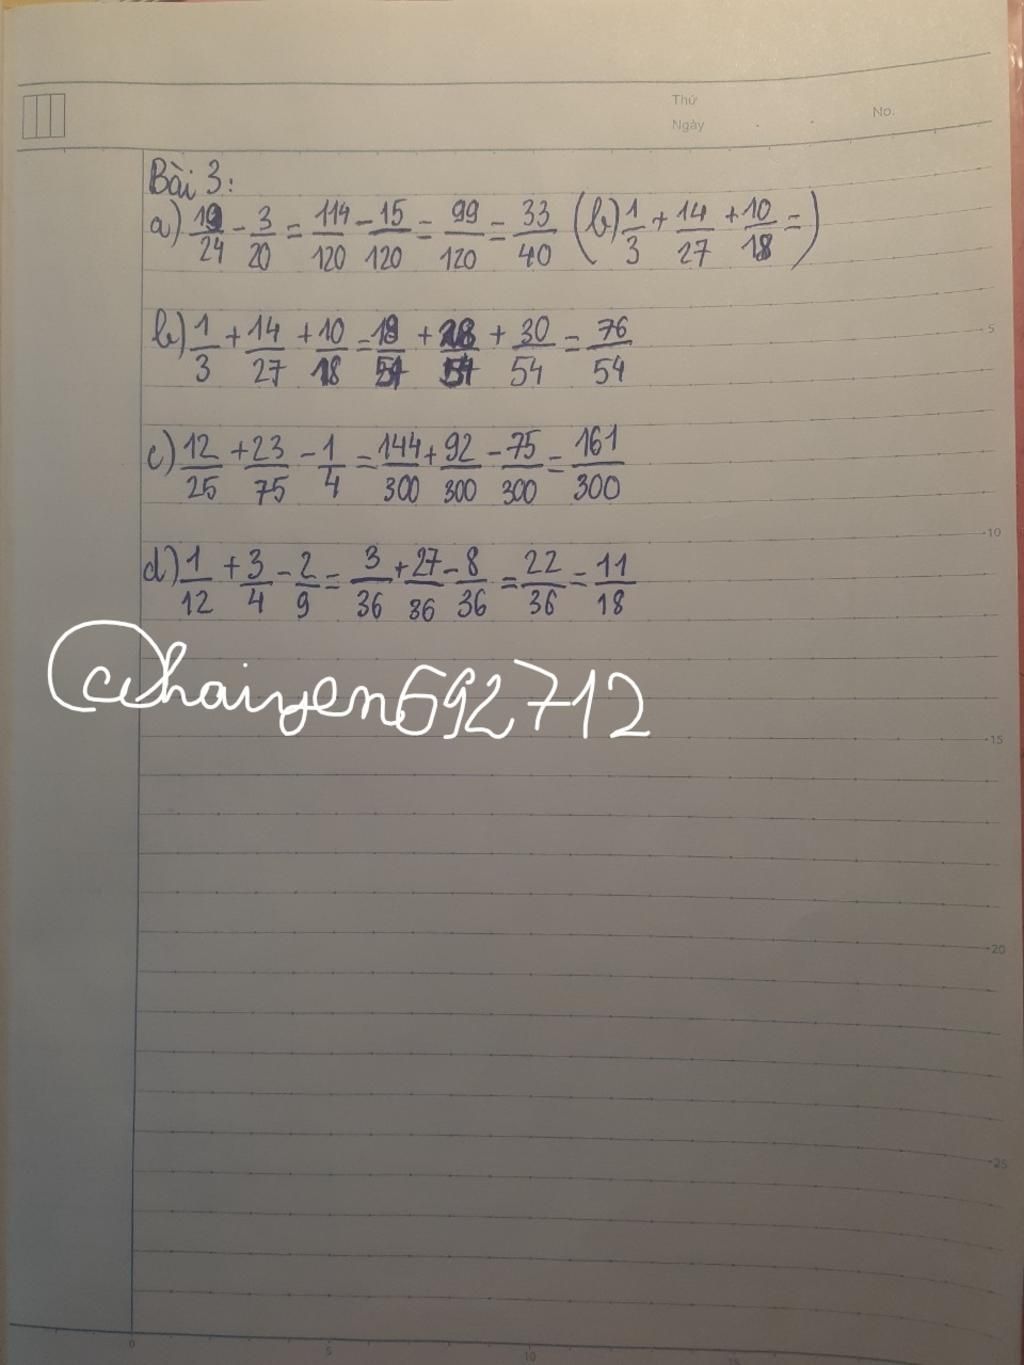 Thứ
Ngày
No.
Bài 3:
a) 19/24 - 3/20 = 114/120 - 15/120 = 99/120 = 33/40 (b) 1/3 + 14/27 + 10/18 = )
b) 1/3 + 14/27 + 10/18 = 18/54 + 28/54 + 30/54 = 76/54
5
c) 12/25 + 23/75 - 1/4 = 144/300 + 92/300 - 75/300 = 161/300
10
d) 1/12 + 3/4 - 2/9 = 3/36 + 27/36 - 8/36 = 22/36 = 11/18
@haiyen692712
15
20
25
0 5 10